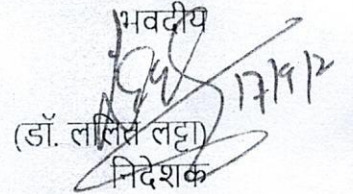 भवदीय
17/9/2
(डॉ. ललित लट्टा)
निदेशक